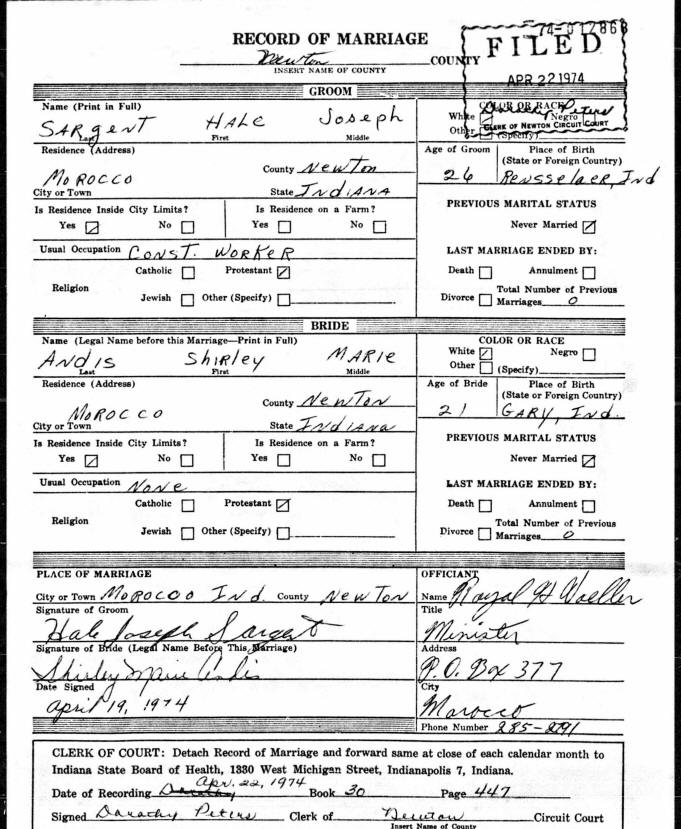 74-012868
RECORD OF MARRIAGE
FILED
Newton COUNTY
INSERT NAME OF COUNTY
APR 22 1974
GROOM
Name (Print in Full)
COLOR OR RACE
Dorothy Peters
SARgENT HALE Joseph
White Negro
Last First Middle
Other (Specify)
CLERK OF NEWTON CIRCUIT COURT
Residence (Address)
Age of Groom Place of Birth
(State or Foreign Country)
MOROCCO County Newton
26 Rensselaer, Ind
City or Town State INDIANA
Is Residence Inside City Limits? Is Residence on a Farm?
PREVIOUS MARITAL STATUS
Yes No Yes No
Never Married
Usual Occupation CONST. WORKER
LAST MARRIAGE ENDED BY:
Catholic Protestant
Death Annulment
Religion
Jewish Other (Specify)
Divorce Total Number of Previous
Marriages 0
BRIDE
Name (Legal Name before this Marriage—Print in Full)
COLOR OR RACE
ANDIS ShIRLEy MARIE
White Negro
Last First Middle
Other (Specify)
Residence (Address)
Age of Bride Place of Birth
(State or Foreign Country)
MOROCCO County NewTon
21 GARY, Ind.
City or Town State INdIANA
Is Residence Inside City Limits? Is Residence on a Farm?
PREVIOUS MARITAL STATUS
Yes No Yes No
Never Married
Usual Occupation None
LAST MARRIAGE ENDED BY:
Catholic Protestant
Death Annulment
Religion
Jewish Other (Specify)
Divorce Total Number of Previous
Marriages 0
PLACE OF MARRIAGE
City or Town MOROCOO Ind. County NewTon
Signature of Groom
Hale Joseph Sargent
Signature of Bride (Legal Name Before This Marriage)
Shirley Marie Andis
Date Signed
April 19, 1974
OFFICIANT
Name Royal H
Title
Minister
Address
P.O. Box 377
City
Morocco
Phone Number 285-2791
CLERK OF COURT: Detach Record of Marriage and forward same at close of each calendar month to
Indiana State Board of Health, 1330 West Michigan Street, Indianapolis 7, Indiana.
Date of Recording Apr. 22, 1974 Book 30 Page 447
Signed Dorothy Peters Clerk of Newton Circuit Court
Insert Name of County